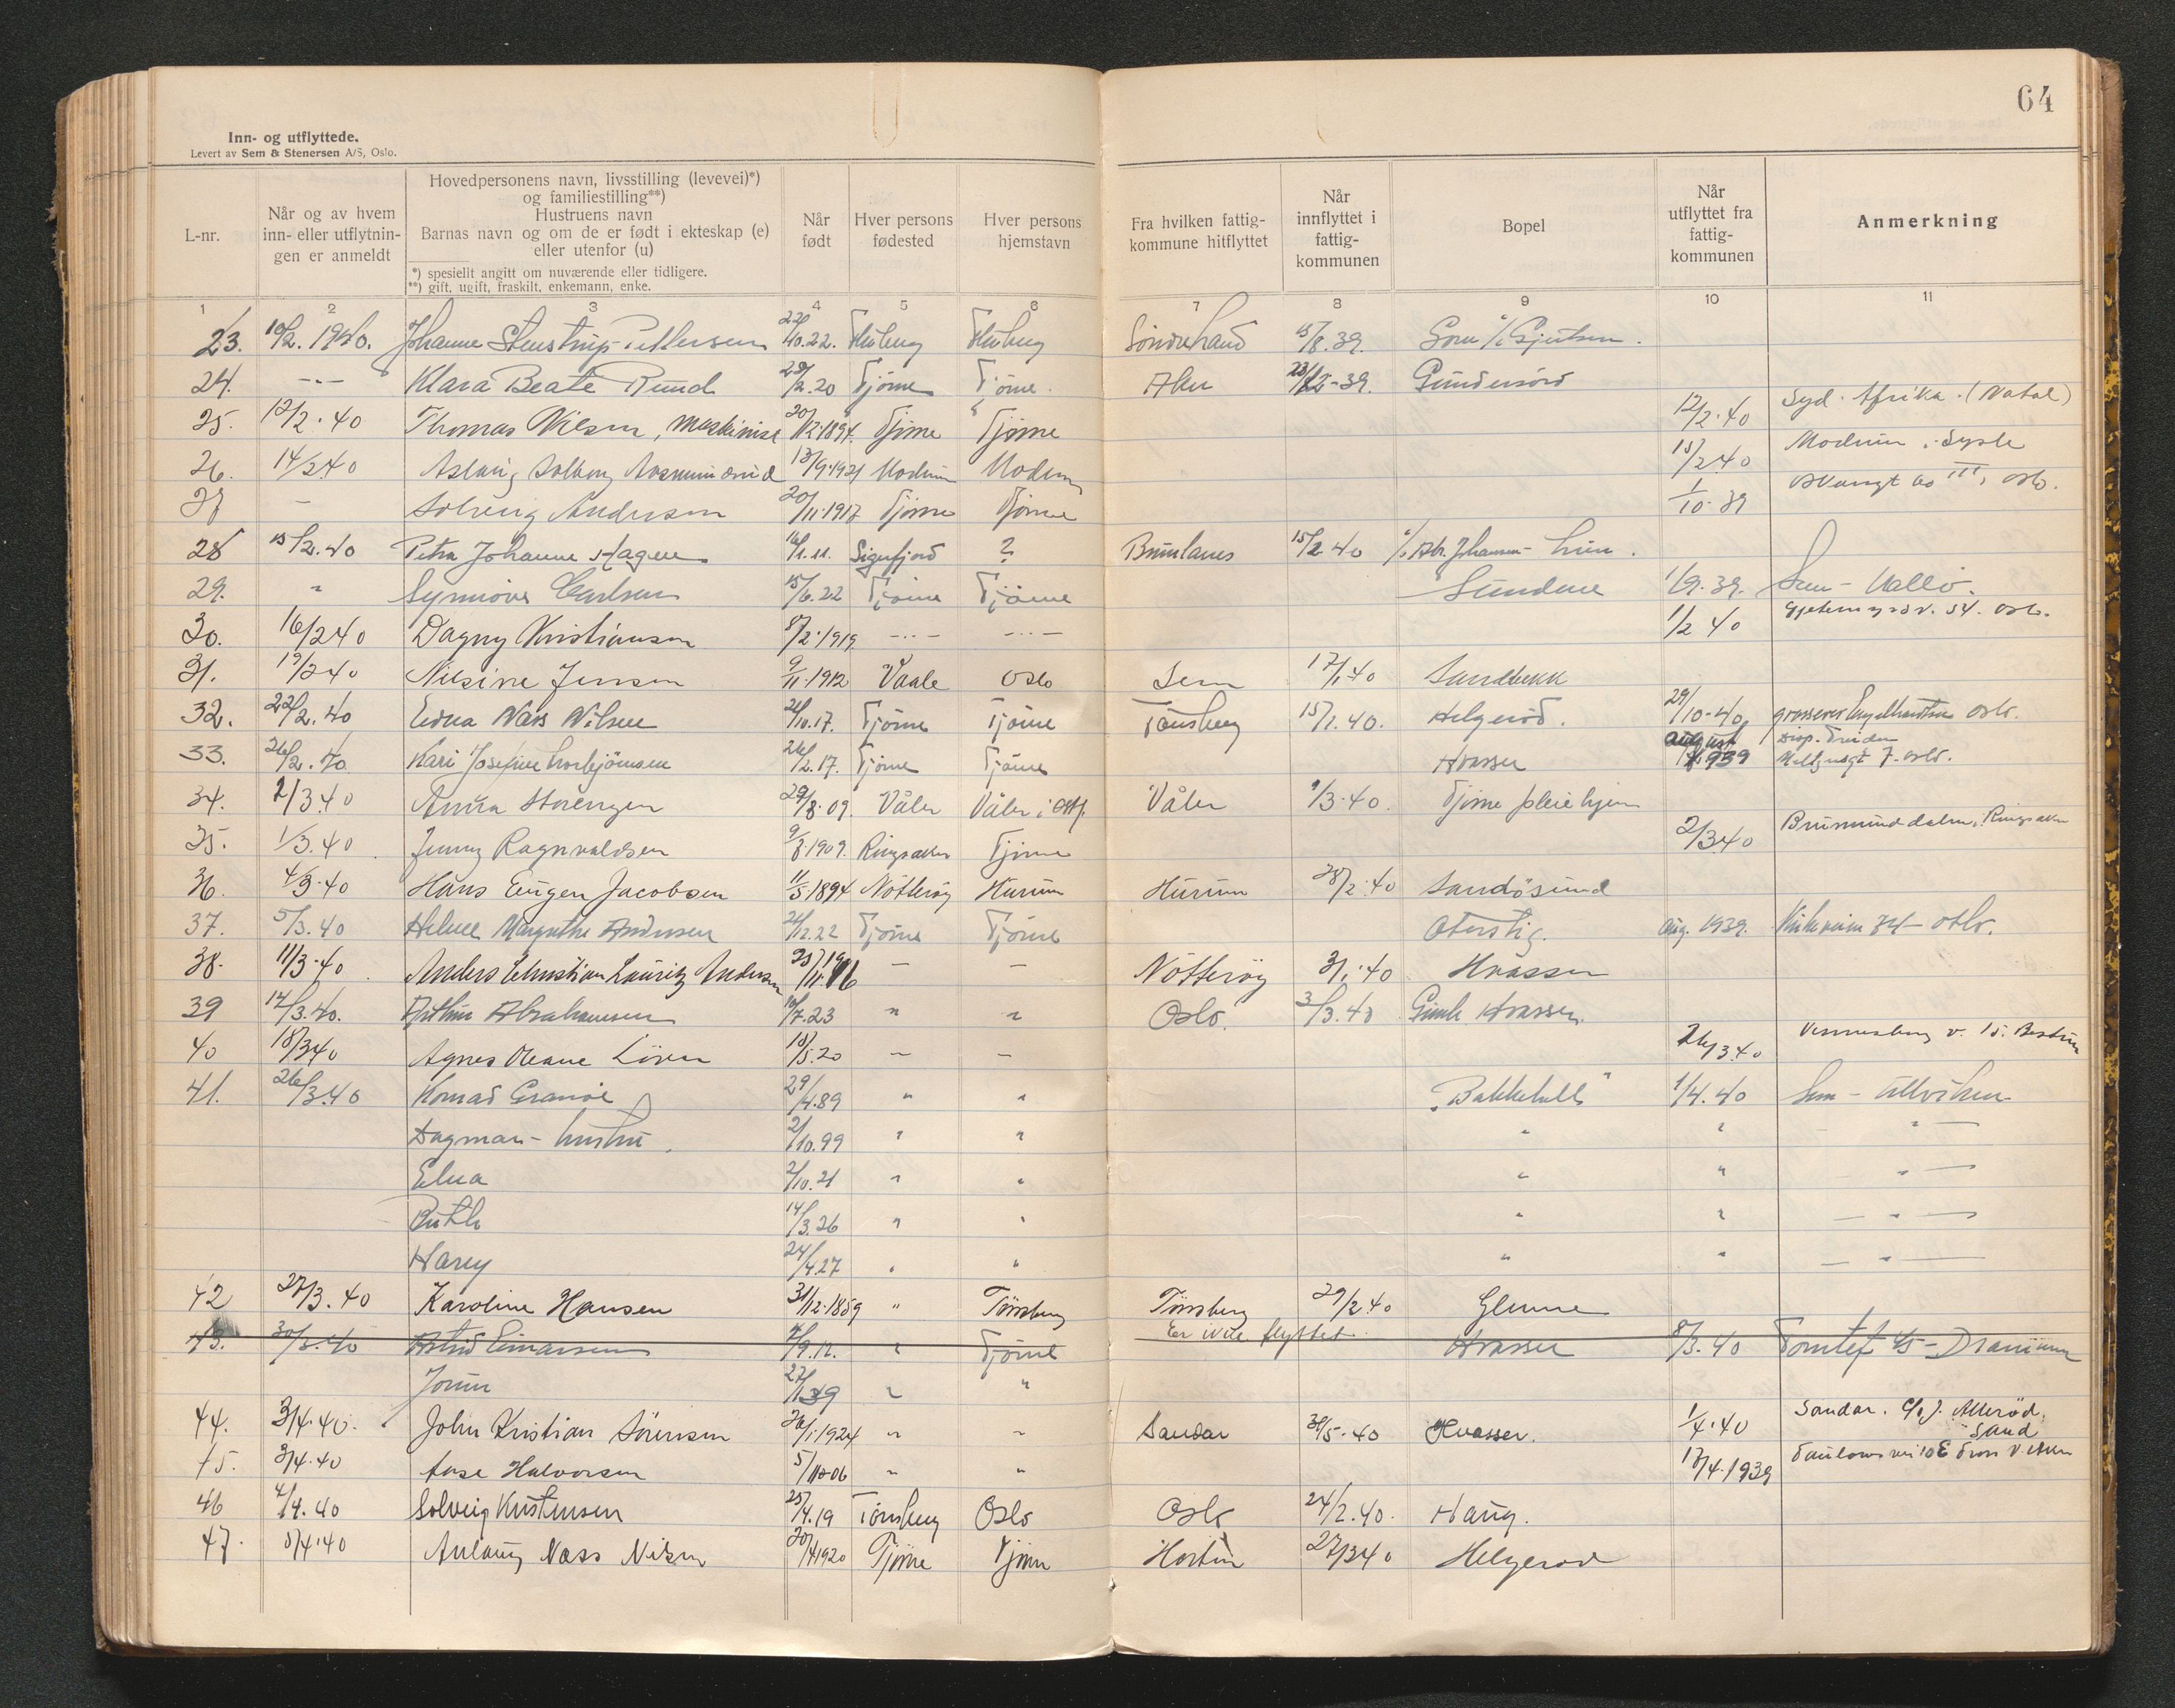 64
Inn- og utflyttede.
Levert av Sem & Stenersen A/S, Oslo.
L-nr.
Når og av hvem inn- eller utflytnin-gen er anmeldt
Hovedpersonens navn, livsstilling (levevei)*)
og familiestilling**)
Hustruens navn
Barnas navn og om de er født i ekteskap (e)
eller utenfor (u)
*) spesiellt angitt om nuværende eller tidligere.
**) gift, ugift, fraskilt, enkemann, enke.
Når født
Hver persons fødested
Hver persons hjemstavn
Fra hvilken fattig-kommune hitflyttet
Når innflyttet i fattig-kommunen
Bopel
Når utflyttet fra fattig-kommunen
Anmerkning
1 2 3 4 5 6 7 8 9 10 11
23. 10/2. 1940. Johanne Stenstrup-Pettersen 22/10.22. 15/8.39.
24. -"- Klara Beate Ruud 28/2.20 Tjöme Tjöme. Aker 23/12-39. Gunderröd
25. 12/2.40 Thomas Nilsen, maskinist 20/12.1894. Tjöme Tjöme 12/2.40 Syd. Afrika. (Natal)
26. 14/2.40 Aslaug Solberg 13/9.1921 Modum Modum 15/2.40 Modum i. Sysle
27 - Solveig Andersen 20/11.1917 Tjöme Tjöme 1/10.39 III, Oslo.
28 15/2.40 Petra Johanne Hagen 16/1.11. Sigerfjord ? Brunlanes 15/2 40
29. " Synnöve Carlsen 15/6.22 Tjöme Tjöme Sundene 1/9.39. Sem - Vallö.
30. 16/2 40 Dagny Kristiansen 8/2.1919. -"- -"- 1/2 40 54. Oslo.
31. 19/2 40 Nilsine Jensen 9/11.1912 Vaale Oslo Sem 17/1.40 Sandbekk
32. 22/2.40 Edna Næs Nilsen 21/10.17. Tjöme Tjöme Tönsberg 15/1.40. Helgeröd. 29/10-40 grosserer Engelhardtsen Oslo.
33. 26/2.40 Kari Josefine Torbjörnsen 26/2.17. Tjöme Tjöme Hvasser august 1939 7. Oslo.
34. 2/3.40 Anna Storengen 29/8.09. Våler Våler i Østf. Våler 1/3.40. Tjöme pleiehjem
35. 1/3.40 Jenny Ragnvaldsen 9/8.1909. Ringsaker Tjöme 2/3 40 Brumunddalen, Ringsaker
36. 4/3.40 Hans Eugen Jacobsen 11/5.1894 Nötteröy Hurum Hurum 28/2.40 Sandösund
37. 5/3.40 Helene Margrethe Andersen 21/12.22 Tjöme Tjöme Oterstig. Aug. 1939. Kirkeveien 34 - Oslo.
38. 11/3.40. Anders Christian Lauritz Andersen - - Nötteröy 3/1.40 Hvasser
39 14/3.40. Arthur Abrahamsen 10/7.23 " " Oslo. 3/3.40 Gimle Hvasser.
40 18/3 40 Agnes Oleane Löven 18/5.20 - - 26/3.40
41. 26/3.40 Konrad Granöe 29/4.89 " " "Bakketull" 1/4.40 Sem - Ulleviken
Dagmar - hustru. 2/10.99 " " " " - " -
Elna 2/10.21 " " " " - " -
Ruth 14/3.26 " " " " - " -
Harry 24/4.27 " " " " - " -
42 27/3.40 Karoline Hansen 31/12.1859 " Tönsberg Tönsberg 29/2.40 Glenne
Er ikke flyttet.
43. 30/3.40 Astrid Einarsen 4/9.12. " Tjöme Hvasser 8/3.40 Tomtef. 45 - Drammen
Jorun 27/1 39 " "
44. 3/4.40. John Kristian Sörensen 26/1.1924 " " Sandar 30/5.40 Hvasser. 1/4.40 Sandar. C/o J. Alleröd.
45. 3/4.40 Aase Halvorsen " " 17/4.1939
46 4/4.40 Solveig Kristensen 25/4.19 Tönsberg Oslo Oslo 24/2.40. Haug.
47. 8/4.40 Aslaug Næss Nilsen 20/4 1920 Tjöme Tjöme Horten 27/3 40 Helgeröd